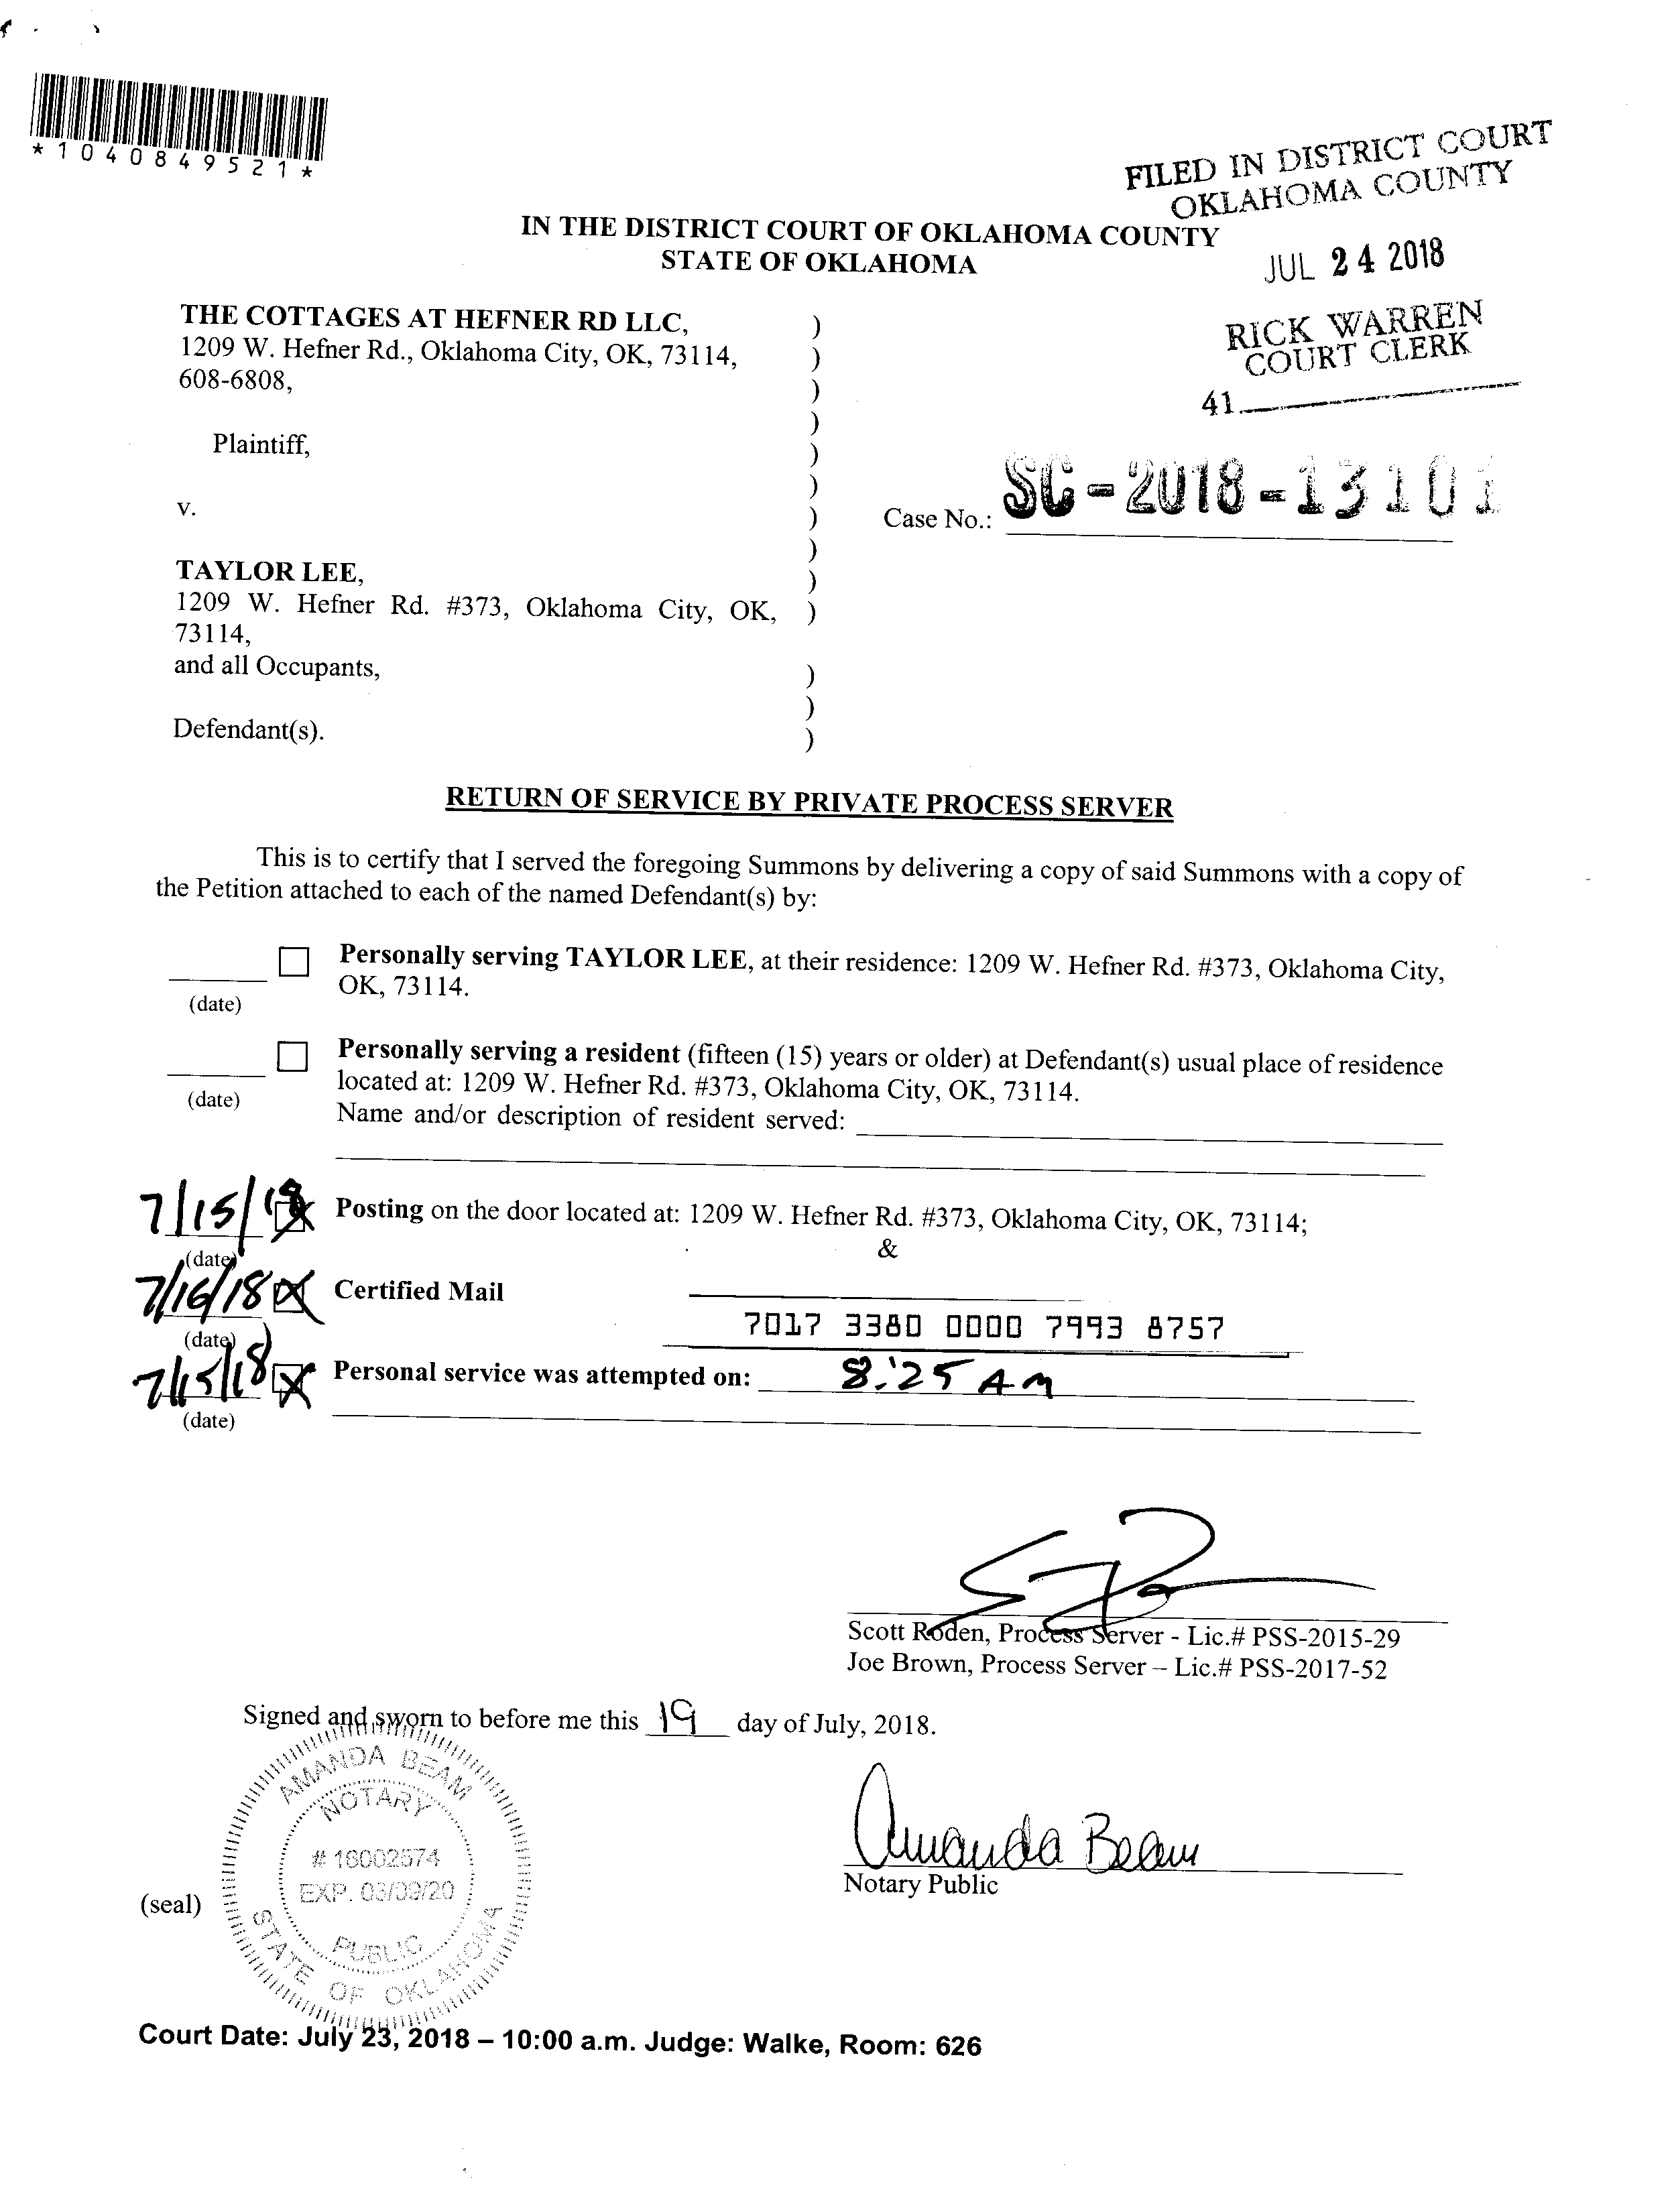 *1040849521*
FILED IN DISTRICT COURT
OKLAHOMA COUNTY
IN THE DISTRICT COURT OF OKLAHOMA COUNTY
STATE OF OKLAHOMA
JUL 24 2018
RICK WARREN
COURT CLERK
41
THE COTTAGES AT HEFNER RD LLC, )
1209 W. Hefner Rd., Oklahoma City, OK, 73114, )
608-6808, )
)
Plaintiff, )
)
v. )
Case No.: SC-2018-13101
)
TAYLOR LEE, )
1209 W. Hefner Rd. #373, Oklahoma City, OK, )
73114,
and all Occupants, )
)
Defendant(s). )
RETURN OF SERVICE BY PRIVATE PROCESS SERVER
This is to certify that I served the foregoing Summons by delivering a copy of said Summons with a copy of
the Petition attached to each of the named Defendant(s) by:
Personally serving TAYLOR LEE, at their residence: 1209 W. Hefner Rd. #373, Oklahoma City,
OK, 73114.
(date)
Personally serving a resident (fifteen (15) years or older) at Defendant(s) usual place of residence
located at: 1209 W. Hefner Rd. #373, Oklahoma City, OK, 73114.
(date)
Name and/or description of resident served:
7/15/18 Posting on the door located at: 1209 W. Hefner Rd. #373, Oklahoma City, OK, 73114;
&
(date)
7/16/18 Certified Mail
7017 3380 0000 7993 8757
(date)
7/15/18 Personal service was attempted on: 8:25 AM
(date)
Scott Roden, Process Server - Lic.# PSS-2015-29
Joe Brown, Process Server – Lic.# PSS-2017-52
Signed and sworn to before me this 19 day of July, 2018.
AMANDA BEAM
NOTARY
# 16002574
EXP. 03/09/20
PUBLIC
STATE OF OKLAHOMA
Amanda Beam
Notary Public
(seal)
Court Date: July 23, 2018 – 10:00 a.m. Judge: Walke, Room: 626